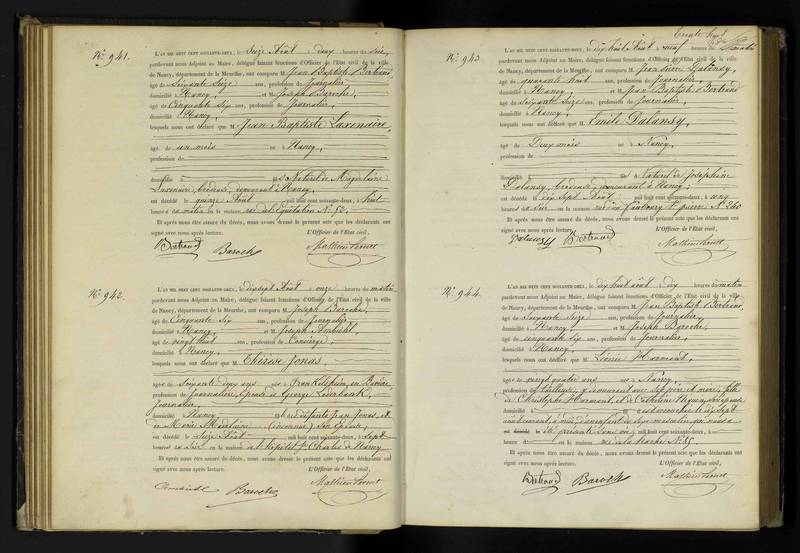 N° 941.
L'AN MIL HUIT CENT SOIXANTE-DEUX, le Seize Août à deux heures du Soir,
pardevant nous Adjoint au Maire, délégué faisant fonctions d'Officier de l'Etat civil de la ville
de Nancy, département de la Meurthe, ont comparu M. Jean Baptiste Bertrand
âgé de Soixante Seize ans, profession de Journalier,
domicilié à Nancy, et M. Joseph Baroche,
âgé de Cinquante Six ans, profession de Journalier,
domicilié à Nancy,
lesquels nous ont déclaré que M. Jean Baptiste
âgé de un mois né à Nancy,
profession de
domicilié à Naturel de Magdelaine
brodeuse, demeurant à Nancy,
est décédé le quinze Août mil huit cent soixante-deux, à huit
heures du matin en la maison rue de l'Equitation N° 50.
Et après nous être assuré du décès, nous avons dressé le présent acte que les déclarants ont
signé avec nous après lecture. L'Officier de l'Etat civil,
Bertrand Baroche
N° 942.
L'AN MIL HUIT CENT SOIXANTE-DEUX, le dix sept Août à onze heures du matin
pardevant nous Adjoint au Maire, délégué faisant fonctions d'Officier de l'Etat civil de la ville
de Nancy, département de la Meurthe, ont comparu M. Joseph Baroche,
âgé de Cinquante Six ans, profession de Journalier
domicilié à Nancy, et M. Joseph
âgé de vingt huit ans, profession de Concierge,
domicilié à Nancy,
lesquels nous ont déclaré que M. Thérèse Jonas,
âgée de Soixante ans née à en Bavière
profession de Journalière, Epouse de George
Journalier,
domiciliée à Nancy fille des défunts Jean Jonas, et
de Marie Madelaine (inconnue) son Epouse,
est décédée le Seize Août mil huit cent soixante-deux, à Sept
heures du Soir en la maison de l'hôpital St Charles de Nancy
Et après nous être assuré du décès, nous avons dressé le présent acte que les déclarants ont
signé avec nous après lecture. L'Officier de l'Etat civil,
Baroche
N° 943
L'AN MIL HUIT CENT SOIXANTE-DEUX, le dix huit Août à neuf heures du matin
pardevant nous Adjoint au Maire, délégué faisant fonctions d'Officier de l'Etat civil de la ville
de Nancy, département de la Meurthe, ont comparu M. Jean Pierre Dalansy,
âgé de quarante huit ans, profession de Journalier,
domicilié à Nancy, et M. Jean Baptiste Bertrand
âgé de Soixante Seize ans, profession de Journalier,
domicilié à Nancy,
lesquels nous ont déclaré que M. Emile Dalansy,
âgé de Deux mois né à Nancy,
profession de
domicilié à Naturel de Joséphine
Dalansy, brodeuse, demeurant à Nancy;
est décédé le dix sept Août mil huit cent soixante-deux, à cinq
heures du Soir en la maison rue du faubourg St pierre
Et après nous être assuré du décès, nous avons dressé le présent acte que les déclarants ont
signé avec nous après lecture. L'Officier de l'Etat civil,
Dalansy Bertrand
N° 944.
L'AN MIL HUIT CENT SOIXANTE-DEUX, le dix huit août à dix heures du matin
pardevant nous Adjoint au Maire, délégué faisant fonctions d'Officier de l'Etat civil de la ville
de Nancy, département de la Meurthe, ont comparu M. Jean Baptiste Bertrand,
âgé de Soixante Seize ans, profession de Journalier,
domicilié à Nancy, et M. Joseph Baroche,
âgé de cinquante Six ans, profession de Journalier,
domicilié à Nancy,
lesquels nous ont déclaré que M. Harmant,
âgée de vingt quatre ans née à Nancy,
profession de demeurant avec ses père et mère, fille
de Christophe Harmant, et de Catherine son épouse
domicilié à est accouchée le dix sept
août courant, à midi, d'un enfant du sexe masculin, qui nous a
été présenté sans vie mil huit cent soixante-deux, à
heures en la maison rue de la hache N° 85
Et après nous être assuré du décès, nous avons dressé le présent acte que les déclarants ont
signé avec nous après lecture. L'Officier de l'Etat civil,
Bertrand Baroche